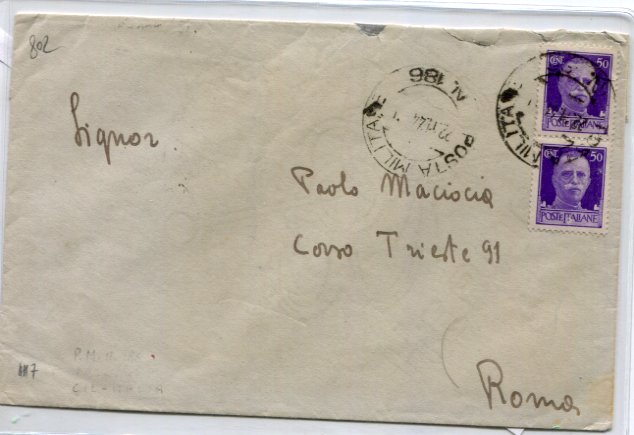 802
N. 186
POSTA MILITARE
CENT 50
POSTE ITALIANE
POSTA MILITARE
CENT 50
POSTE ITALIANE
Signor
Paolo Maciocia
Corso Trieste 91
Roma
P.M.
7